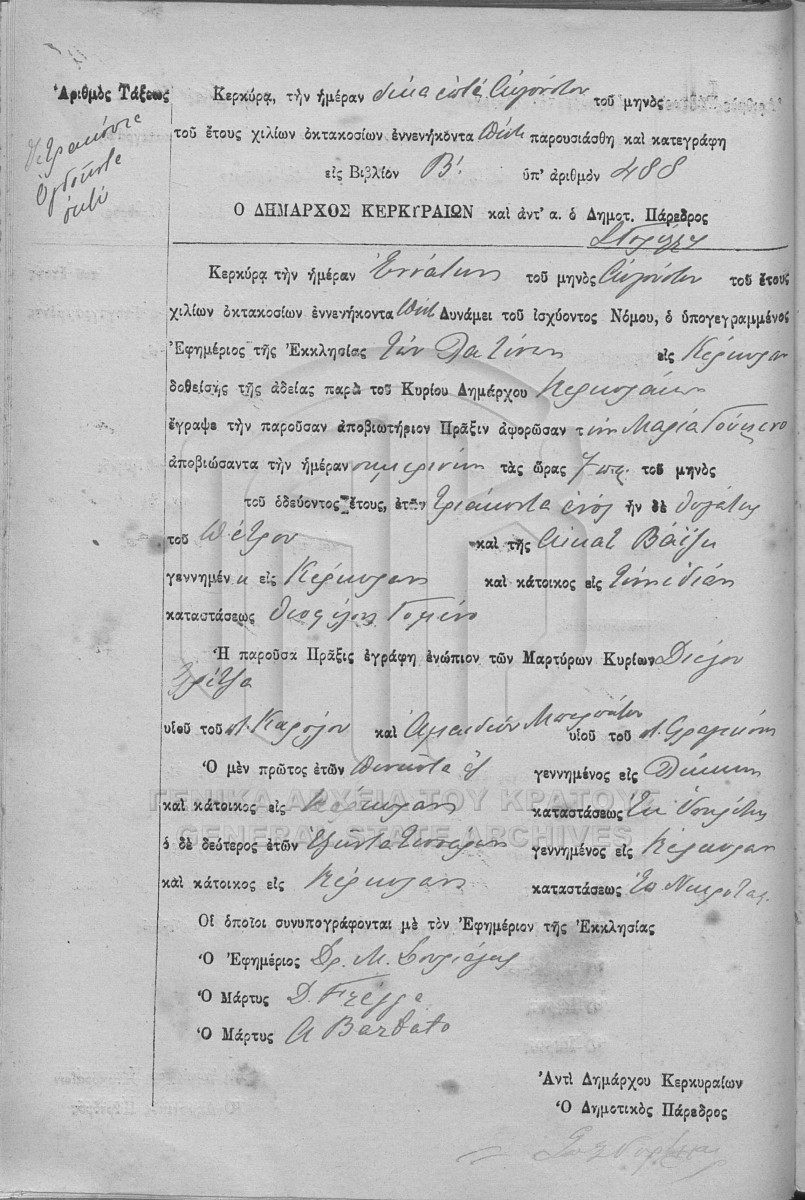 Ἀριθμὸς Τάξεως
Τετρακόσια
Ὀγδοῆντα
ὀκτώ
Κερκύρᾳ, τὴν ἡμέραν δέκα ἑπτά Αὐγούστου τοῦ μηνὸς
τοῦ ἔτους χιλίων ὀκτακοσίων ἐννενήκοντα πέντε παρουσιάσθη καὶ κατεγράφη
εἰς Βιβλίον Β! ὑπ' ἀριθμὸν 488
Ὁ ΔΗΜΑΡΧΟΣ ΚΕΡΚΥΡΑΙΩΝ καὶ ἀντ' α. ὁ Δημοτ. Πάρεδρος
Κερκύρᾳ τὴν ἡμέραν Ἐννάτην τοῦ μηνὸς Αὐγούστου τοῦ ἔτους
χιλίων ὀκτακοσίων ἐννενήκοντα πέντε Δυνάμει τοῦ ἰσχύοντος Νόμου, ὁ ὑπογεγραμμένος
Ἐφημέριος τῆς Ἐκκλησίας τῶν Λατίνων εἰς Κέρκυραν
δοθείσης τῆς ἀδείας παρὰ τοῦ Κυρίου Δημάρχου Κερκυραίων
ἔγραψε τὴν παροῦσαν ἀποβιωτήριον Πρᾶξιν ἀφορῶσαν τ ην Μαρία
ἀποβιώσαντα τὴν ἡμέραν σημερινήν τὰς ὥρας 7 πμ. τοῦ μηνὸς
τοῦ ὁδεύοντος ἔτους, ἐτῶν τριάκοντα ἑνός ἦν δὲ θυγάτηρ
τοῦ Πέτρου καὶ τῆς Αἰκατ
γεννημέν η εἰς Κέρκυραν καὶ κάτοικος εἰς τὴν ἰδίαν
καταστάσεως
Ἡ παροῦσα Πρᾶξις ἐγράφη ἐνώπιον τῶν Μαρτύρων Κυρίων
υἱοῦ τοῦ π. Καρόλου καὶ υἱοῦ τοῦ π.
Ὁ μὲν πρῶτος ἐτῶν πενῆντα ἕξ γεννημένος εἰς
καὶ κάτοικος εἰς Κέρκυραν καταστάσεως
ὁ δὲ δεύτερος ἐτῶν Ἑξῆντα τεσσάρων γεννημένος εἰς Κέρκυραν
καὶ κάτοικος εἰς Κέρκυραν καταστάσεως
Οἱ ὁποῖοι συνυπογράφονται μὲ τὸν Ἐφημέριον τῆς Ἐκκλησίας
Ὁ Ἐφημέριος Δρ. Μ.
Ὁ Μάρτυς D.
Ὁ Μάρτυς A Barbato
Ἀντὶ Δημάρχου Κερκυραίων
Ὁ Δημοτικὸς Πάρεδρος
ΓΕΝΙΚΑ ΑΡΧΕΙΑ ΤΟΥ ΚΡΑΤΟΥΣ
GENERAL STATE ARCHIVES